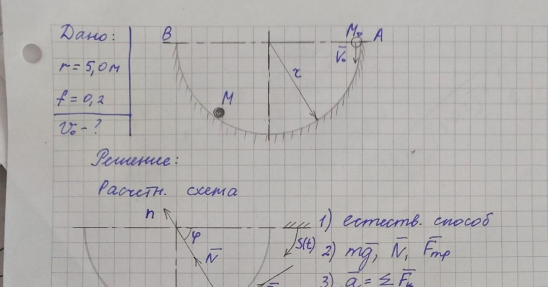 Дано:
r = 5,0 м
f = 0,2
V₀ - ?
B
M₀
A
V̄₀
r
M
Решение:
Расчетн. схема
n
φ
N̄
S(t)
1) естеств. способ
2) mḡ, N̄, F̄тр